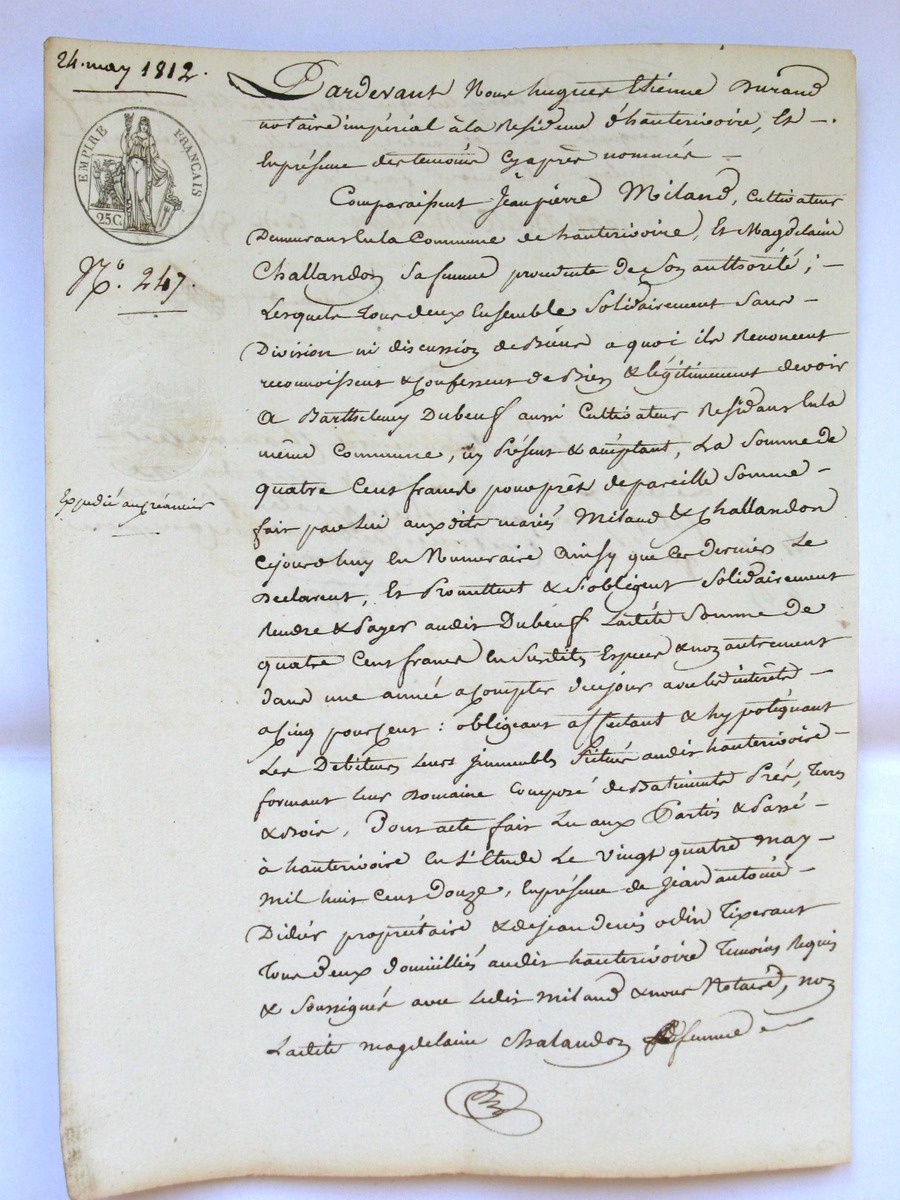 24. may 1812.
EMPIRE FRANÇAIS
25 C.
N.º 247.
Expedié au créancier
Pardevant Nous hugues Etienne Durand
notaire impérial à la Residence d'hauterivoire, Et
En présence des temoins Cyaprès nommés
Comparaissent Jean pierre Miland, Cultivateur
Demeurans En la Commune de hauterivoire, Et Magdelaine
Challandon sa femme procedente de Son authorité ;
Lesquels tous deux Ensemble Solidairement Sans
Division ni discussion de Biens a quoi ils Renoncent
reconnoissent & Confessent de Bien & légitimement devoir
A Barthelemy Dubeuf aussi Cultivateur Residans En la
même Commune, icy Présent & acceptant, La Somme de
quatre Cent francs pour prêt de pareille Somme
fait par Lui auxdits mariés Miland & Challandon
Cejourdhuy En Numeraire Ainsy que ces derniers Le
Declarent, Et Promettent & S'obligent Solidairement
Rendre & Payer audit Dubeuf Ladite Somme de
quatre Cent francs En Susdites Especes & non autrement
dans une année a Compter de ce jour avec les intérêts
a Cinq pour Cent : obligeant affectant & hypotéquant
Les Debiteurs Leurs Immeubles Situés audit hauterivoire
formant Leur Domaine Composé de Batiments Prés, Terres
& Bois, Dont acte fait Lu aux Parties & Passé
à hauterivoire En L'Etude Le Vingt quatre may
mil huit Cent Douze, En présence de Jean antoine
Didier propriétaire & de jean denis odin Tixerant
Tous Deux domiciliés audit hauterivoire Temoins Requis
& Soussignés avec Ledit Miland & nous Notaire, non
Ladite magdelaine Chalandon Sa femme